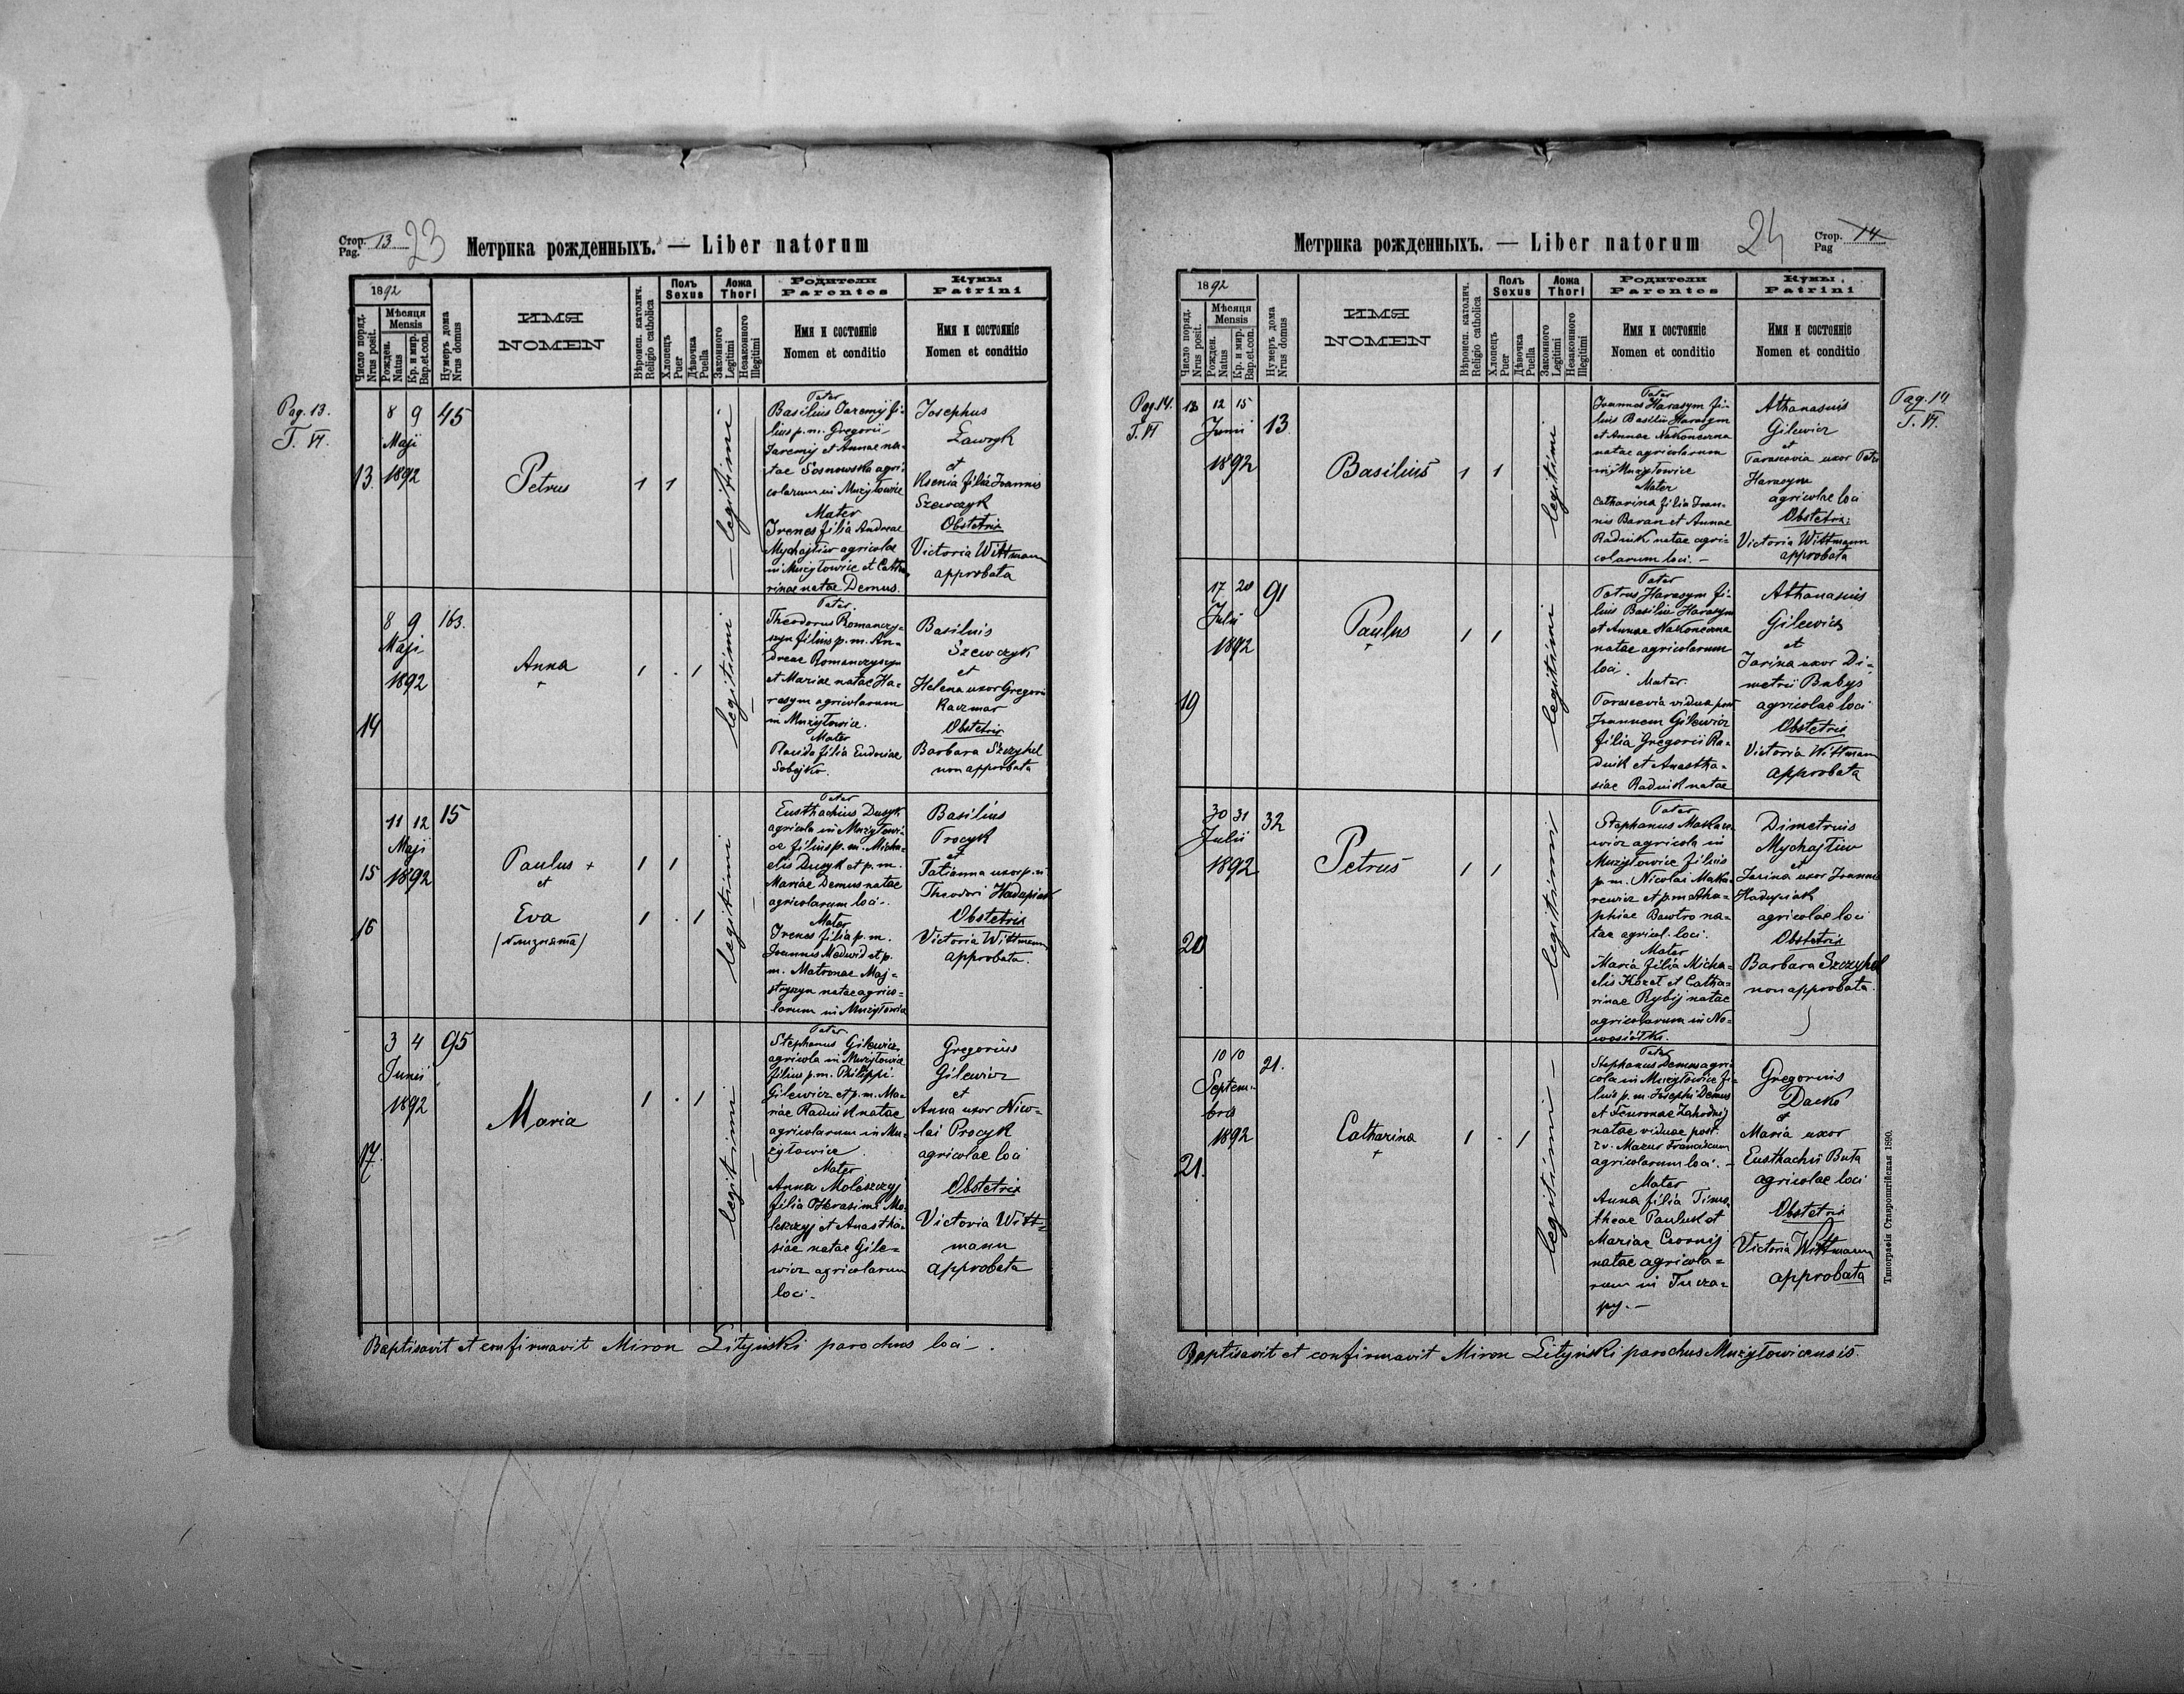 Стор. 13
Pag.
23
Метрика рожденныхъ. — Liber natorum
1892
Число поряд.
Nrus posit.
Мѣсяця
Mensis
Рожден.
Natus
Кр. и мир.
Bap.et.con.
Нумеръ дома
Nrus domus
ИМЯ
NOMEN
Вѣроисп. католич.
Religio catholica
Полъ
Sexus
Хлопецъ
Puer
Дѣвочка
Puella
Ложа
Thori
Законного
Legitimi
Незаконного
Illegitimi
Родители
Parentes
Имя и состояніе
Nomen et conditio
Кумы
Patrini
Имя и состояніе
Nomen et conditio
Pag. 13.
T. VI.
13.
8 9
Maji
1892
45
Petrus
1 1
legitimi
Pater
Basilius Jaremij fi-
lius p.m. Gregorii
Jaremij et Annae na-
tae Sosnowska agri-
colarum in Mużyłowice
Mater
Irenes filia Andreae
Mychajliw agricolae
in Mużyłowice et Catha-
rinae natae Demus.
Josephus
Ławryk
et
Ksenia filia Joannis
Szewczyk
Obstetrix
Victoria Wittmann
approbata
14
8 9
Maji
1892
163.
Anna
+
1 . 1
legitimi
Pater.
Theodorus Romanczy-
szyn filius p.m. An-
dreae Romanczyszyn
et Mariae natae Ha-
rasym agricolarum
in Mużyłowice.
Mater
Placida filia Eudociae
Sobejko.
Basilius
Szewczyk
et
Helena uxor Gregorii
Kaczmar
Obstetrix
Barbara Szczyhel
non approbata
15
16
11 12
Maji
1892
15
Paulus +
et
Eva
(близнята)
1 1
1 . 1
legitimi
Pater
Eusthachius Dusyk
agricola in Mużyłowi-
ce filius p.m. Micha-
elis Dusyk et p.m.
Mariae Demus natae
agricolarum loci.
Mater
Irenes filia p.m.
Joannis Medwid et p.
m. Matronae Maj-
stryszyn natae agrico-
larum in Mużyłowice
Basilius
Procyk
et
Tatianna uxor p.m.
Theodori Hadupiak
Obstetrix
Victoria Wittmann
approbata.
17.
3 4
Junii
1892
95
Maria
1 . 1
legitimi
Pater
Stephanus Gilewicz
agricola in Mużyłowice
filius p.m. Philippi
Gilewicz et p.m. Ma-
riae Radnik natae
agricolarum in Mu-
żyłowice
Mater
Anna Moleszczyj
filia Herasimi Mo-
leszczyj et Anastha-
siae natae Gile-
wicz agricolarum
loci.
Gregorius
Gilewicz
et
Anna uxor Nico-
lai Procyk
agricolae loci
Obstetrix
Victoria Witt-
mann
approbata
Baptisavit et confirmavit Miron Lityński parochus loci.
Метрика рожденныхъ. — Liber natorum
24
Стор. 14
Pag
1892
Число поряд.
Nrus posit.
Мѣсяця
Mensis
Рожден.
Natus
Кр. и мир.
Bap.et.con.
Нумеръ дома
Nrus domus
ИМЯ
NOMEN
Вѣроисп. католич.
Religio catholica
Полъ
Sexus
Хлопецъ
Puer
Дѣвочка
Puella
Ложа
Thori
Законного
Legitimi
Незаконного
Illegitimi
Родители
Parentes
Имя и состояніе
Nomen et conditio
Кумы
Patrini
Имя и состояніе
Nomen et conditio
Pag. 14.
T. VI
12 15
Junii
1892
13
Basilius
1 1
legitimi
Pater
Joannes Harasym fi-
lius Basilii Harasym
et Annae Nakoneczna
natae agricolarum
in Mużyłowice
Mater
Catharina filia Joan-
nis Baran et Annae
Radnik natae agri-
colarum loci. -
Athanasius
Gilewicz
et
Parascevia uxor Petri
Harasym
agricolae loci
Obstetrix
Victoria Wittmann
approbata
Pag. 14
T. VI.
19
17 20
Julii
1892
91
Paulus
+
1 1
legitimi
Pater
Petrus Harasym fi-
lius Basilii Harasym
et Annae Nakoneczna
natae agricolarum
loci.
Mater
Parascevia vidua post
Joannem Gilewicz
filia Gregorii Ra-
dnik et Anastha-
siae Radnik natae
Athanasius
Gilewicz
et
Jarina uxor Di-
metrii Babys
agricolae loci
Obstetrix
Victoria Wittmann
approbata
20
30 31
Julii
1892
32
Petrus
1 1
legitimi
Pater
Stephanus Makare-
wicz agricola in
Mużyłowice filius
p.m. Nicolai Maka-
rewicz et p.m. Aha-
phiae Bawtro na-
tae agricol. loci.
Mater
Maria filia Micha-
elis Kozot et Catha-
rinae Rybij natae
agricolarum in No-
wosiołki.
Dimetrius
Mychajliw
et
Jarina uxor Joannis
Hadupiak
agricolae loci
Obstetrix
Barbara Szczyhel
non approbata.
21.
10 10
Septem-
bris
1892
21.
Catharina
+
1 . 1
legitimi -
Pater
Stephanus Demus agri-
cola in Mużyłowice fi-
lius p.m. Josephi Demus
et Feuronae Zahodnij
natae viduae post.
Mazur Franciscum
agricolarum loci. -
Mater
Anna filia Timo-
theae Pauluk et
Mariae Czornij
natae agricola-
rum in Tucza-
py. -
Gregorius
Dacko
et
Maria uxor
Eusthachii Buta
agricolae loci
Obstetrix
Victoria Wittmann
approbata
Типографія Ставропигійская 1890.
Baptisavit et confirmavit Miron Lityński parochus Mużyłowicensis.